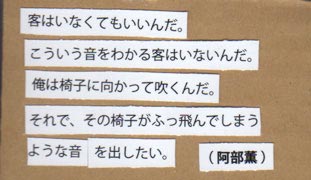 客はいなくてもいいんだ。
こういう音をわかる客はいないんだ。
俺は椅子に向かって吹くんだ。
それで、その椅子がふっ飛んでしまう
ような音 を出したい。 （阿部薫）